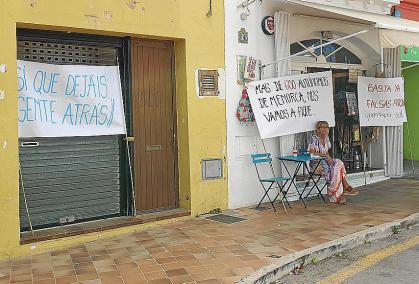 SÍ QUE DEJÁIS
GENTE ATRÁS!
MAS DE 600 AUTÓNOMOS
DE MENORCA, NOS
VAMOS A PIQUE...
BASTA YA
FALSAS